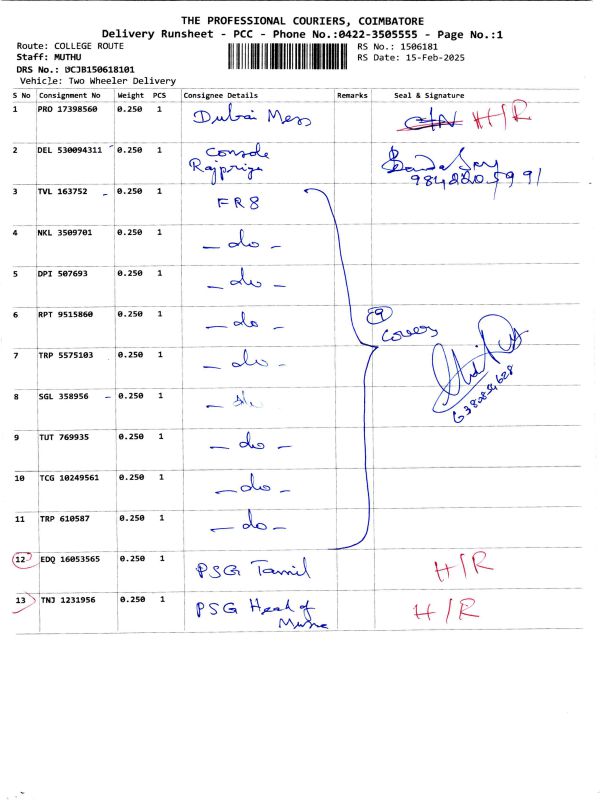 THE PROFESSIONAL COURIERS, COIMBATORE
Delivery Runsheet - PCC - Phone No.:0422-3505555 - Page No.:1
Route: COLLEGE ROUTE
RS No.: 1506181
Staff: MUTHU
RS Date: 15-Feb-2025
DRS No.: DCJB150618101
Vehicle: Two Wheeler Delivery
S No Consignment No Weight PCS Consignee Details Remarks Seal & Signature
1 PRO 17398560 0.250 1 Dubai Mess H/R
2 DEL 530094311 0.250 1 Console
Rajpriya
3 TVL 163752 0.250 1 FR8
4 NKL 3509701 0.250 1 - do -
5 DPI 507693 0.250 1 - do -
6 RPT 9515860 0.250 1 - do -
9
Covers
7 TRP 5575103 0.250 1 - do -
8 SGL 358956 0.250 1 - do -
9 TUT 769935 0.250 1 - do -
10 TCG 10249561 0.250 1 - do -
11 TRP 610587 0.250 1 - do -
12 EDQ 16053565 0.250 1 PSG Tamil H/R
13 TNJ 1231956 0.250 1 PSG Head of H/R